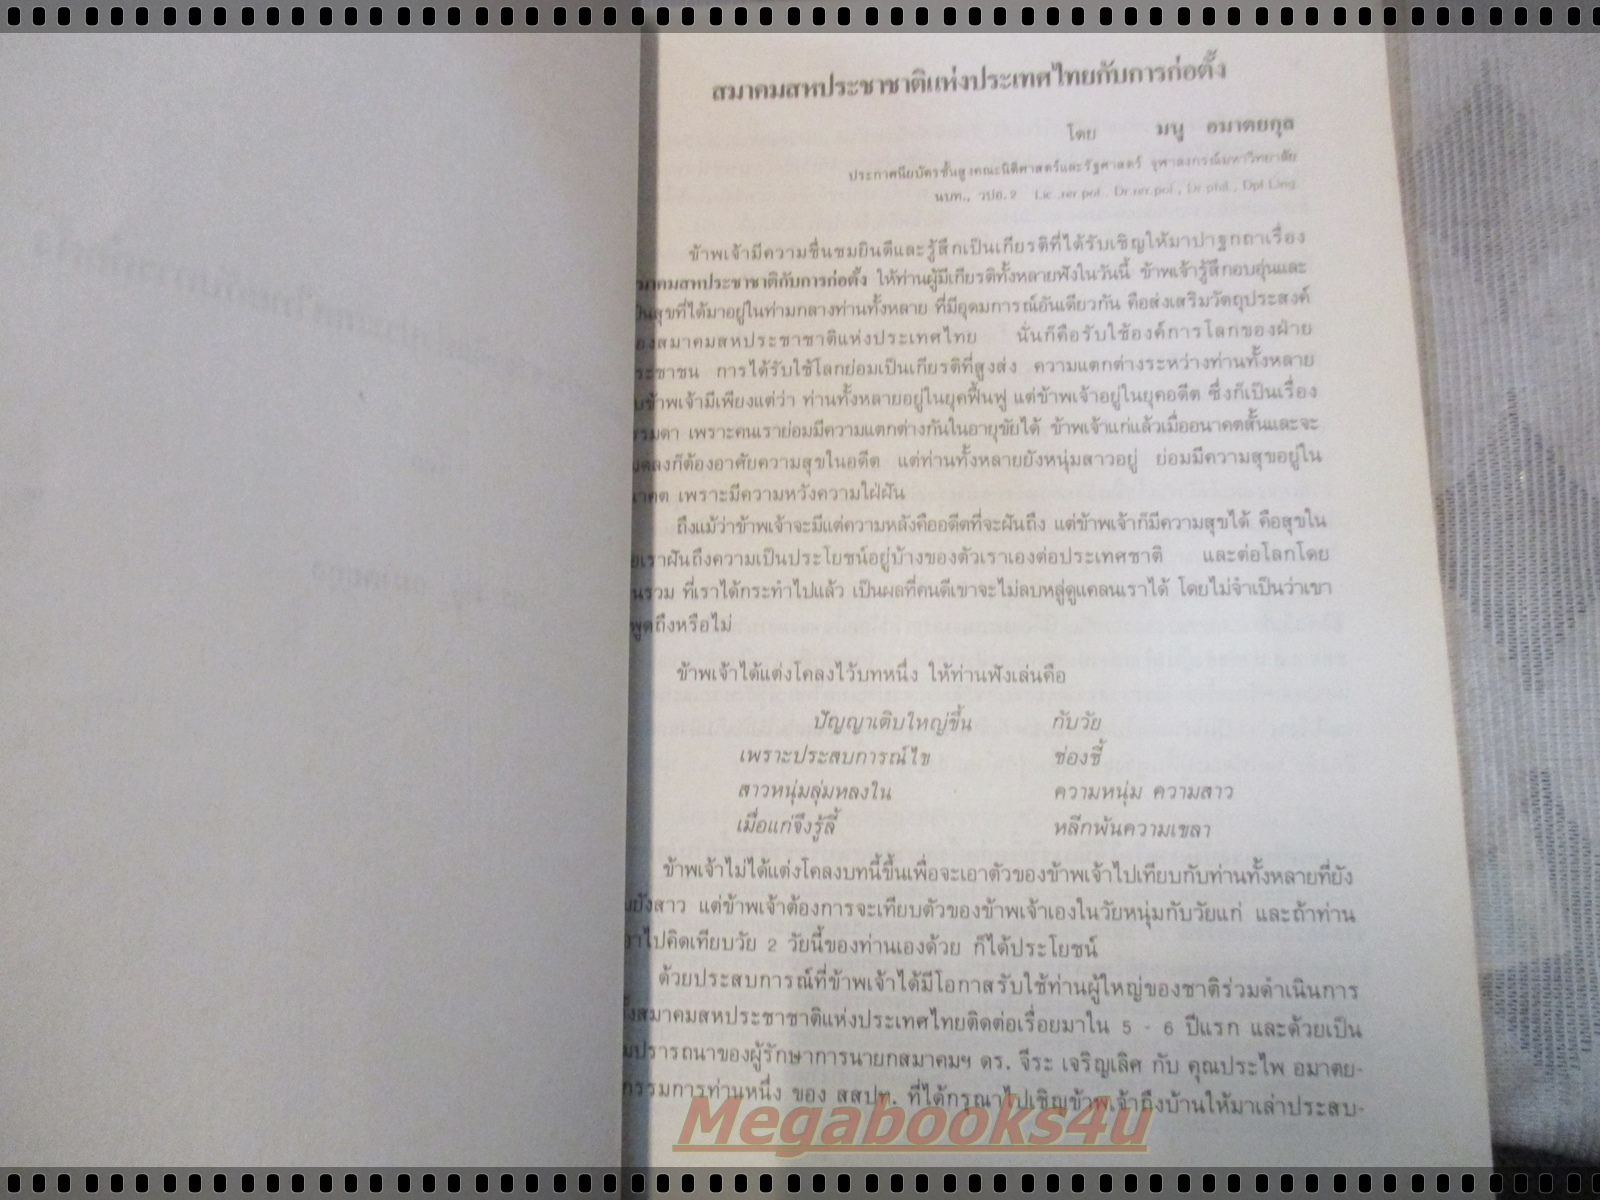 สมาคมสหประชาชาติแห่งประเทศไทยกับการก่อตั้ง
โดย มนู อมาตยกุล
ประกาศนียบัตรชั้นสูงคณะนิติศาสตร์และรัฐศาสตร์ จุฬาลงกรณ์มหาวิทยาลัย
นบท., วปอ.2 Lic.rer.pol., Dr.rer.pol., Dr.phil., Dpl.Ling.
ข้าพเจ้ามีความชื่นชมยินดีและรู้สึกเป็นเกียรติที่ได้รับเชิญให้มาปาฐกถาเรื่อง
มาคมสหประชาชาติกับการก่อตั้ง ให้ท่านผู้มีเกียรติทั้งหลายฟังในวันนี้ ข้าพเจ้ารู้สึกอบอุ่นและ
ป็นสุขที่ได้มาอยู่ในท่ามกลางท่านทั้งหลาย ที่มีอุดมการณ์อันเดียวกัน คือส่งเสริมวัตถุประสงค์
องสมาคมสหประชาชาติแห่งประเทศไทย นั่นก็คือรับใช้องค์การโลกของฝ่าย
ระชาชน การได้รับใช้โลกย่อมเป็นเกียรติที่สูงส่ง ความแตกต่างระหว่างท่านทั้งหลาย
บข้าพเจ้ามีเพียงแต่ว่า ท่านทั้งหลายอยู่ในยุคฟื้นฟู แต่ข้าพเจ้าอยู่ในยุคอดีต ซึ่งก็เป็นเรื่อง
รรมดา เพราะคนเราย่อมมีความแตกต่างกันในอายุขัยได้ ข้าพเจ้าแก่แล้วเมื่ออนาคตสั้นและจะ
มดลงก็ต้องอาศัยความสุขในอดีต แต่ท่านทั้งหลายยังหนุ่มสาวอยู่ ย่อมมีความสุขอยู่ใน
าคต เพราะมีความหวังความใฝ่ฝัน
ถึงแม้ว่าข้าพเจ้าจะมีแต่ความหลังคืออดีตที่จะฝันถึง แต่ข้าพเจ้าก็มีความสุขได้ คือสุขใน
อเราฝันถึงความเป็นประโยชน์อยู่บ้างของตัวเราเองต่อประเทศชาติ และต่อโลกโดย
นรวม ที่เราได้กระทำไปแล้ว เป็นผลที่คนดีเขาจะไม่ลบหลู่ดูแคลนเราได้ โดยไม่จำเป็นว่าเขา
พูดถึงหรือไม่
ข้าพเจ้าได้แต่งโคลงไว้บทหนึ่ง ให้ท่านฟังเล่นคือ
ปัญญาเติบใหญ่ขึ้น กับวัย
เพราะประสบการณ์ไข ช่องชี้
สาวหนุ่มลุ่มหลงใน ความหนุ่ม ความสาว
เมื่อแก่จึงรู้ลี้ หลีกพ้นความเขลา
ข้าพเจ้าไม่ได้แต่งโคลงบทนี้ขึ้นเพื่อจะเอาตัวของข้าพเจ้าไปเทียบกับท่านทั้งหลายที่ยัง
มยังสาว แต่ข้าพเจ้าต้องการจะเทียบตัวของข้าพเจ้าเองในวัยหนุ่มกับวัยแก่ และถ้าท่าน
อาไปคิดเทียบวัย 2 วัยนี้ของท่านเองด้วย ก็ได้ประโยชน์
ด้วยประสบการณ์ที่ข้าพเจ้าได้มีโอกาสรับใช้ท่านผู้ใหญ่ของชาติร่วมดำเนินการ
ั้งสมาคมสหประชาชาติแห่งประเทศไทยติดต่อเรื่อยมาใน 5 - 6 ปีแรก และด้วยเป็น
มปรารถนาของผู้รักษาการนายกสมาคมฯ ดร. จีระ เจริญเลิศ กับ คุณประไพ อมาตย-
กรรมการท่านหนึ่ง ของ สสปท. ที่ได้กรุณาไปเชิญข้าพเจ้าถึงบ้านให้มาเล่าประสบ-
Megabooks4u